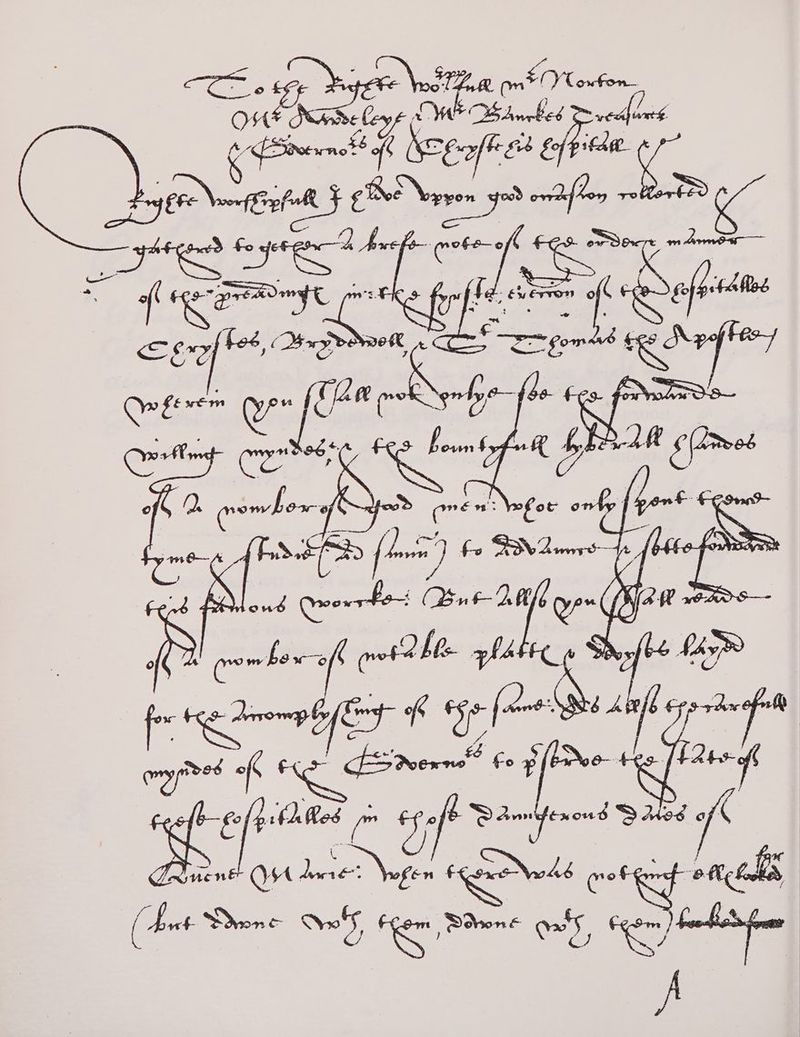 To the Righte wor:ppfull mr Norton
Mr Awdeleye & Mr Banckes Treasurer
& Governors off Chrystes his hospitall &c
Righte worshipfull I have vppon good occasion collected &
gathered together a brefe note off the order & manner
off the procedinge in the fyrste erection off the hospitalles
Chrystes, Brydewell, & St Thomas the Apostle,
wherein you shall not onlye see the forwarde
willing myndes & the bountyfull lyberall handes
off a nomber off good men whoe only spent theire
tyme & studie (ad summum) to advaunce & sette forwarde
this famous worcke: But allso you shall reade
off a nomber off notable platte & devyses layed
for the accomplyshing off the same. As allso the carefull
myndes off the Governors to preserve the state off
these hospitalles in those daungerous daies off
Quene Marie: when there was nothing elles looked for
(but downe with them, downe with them) looked for
A